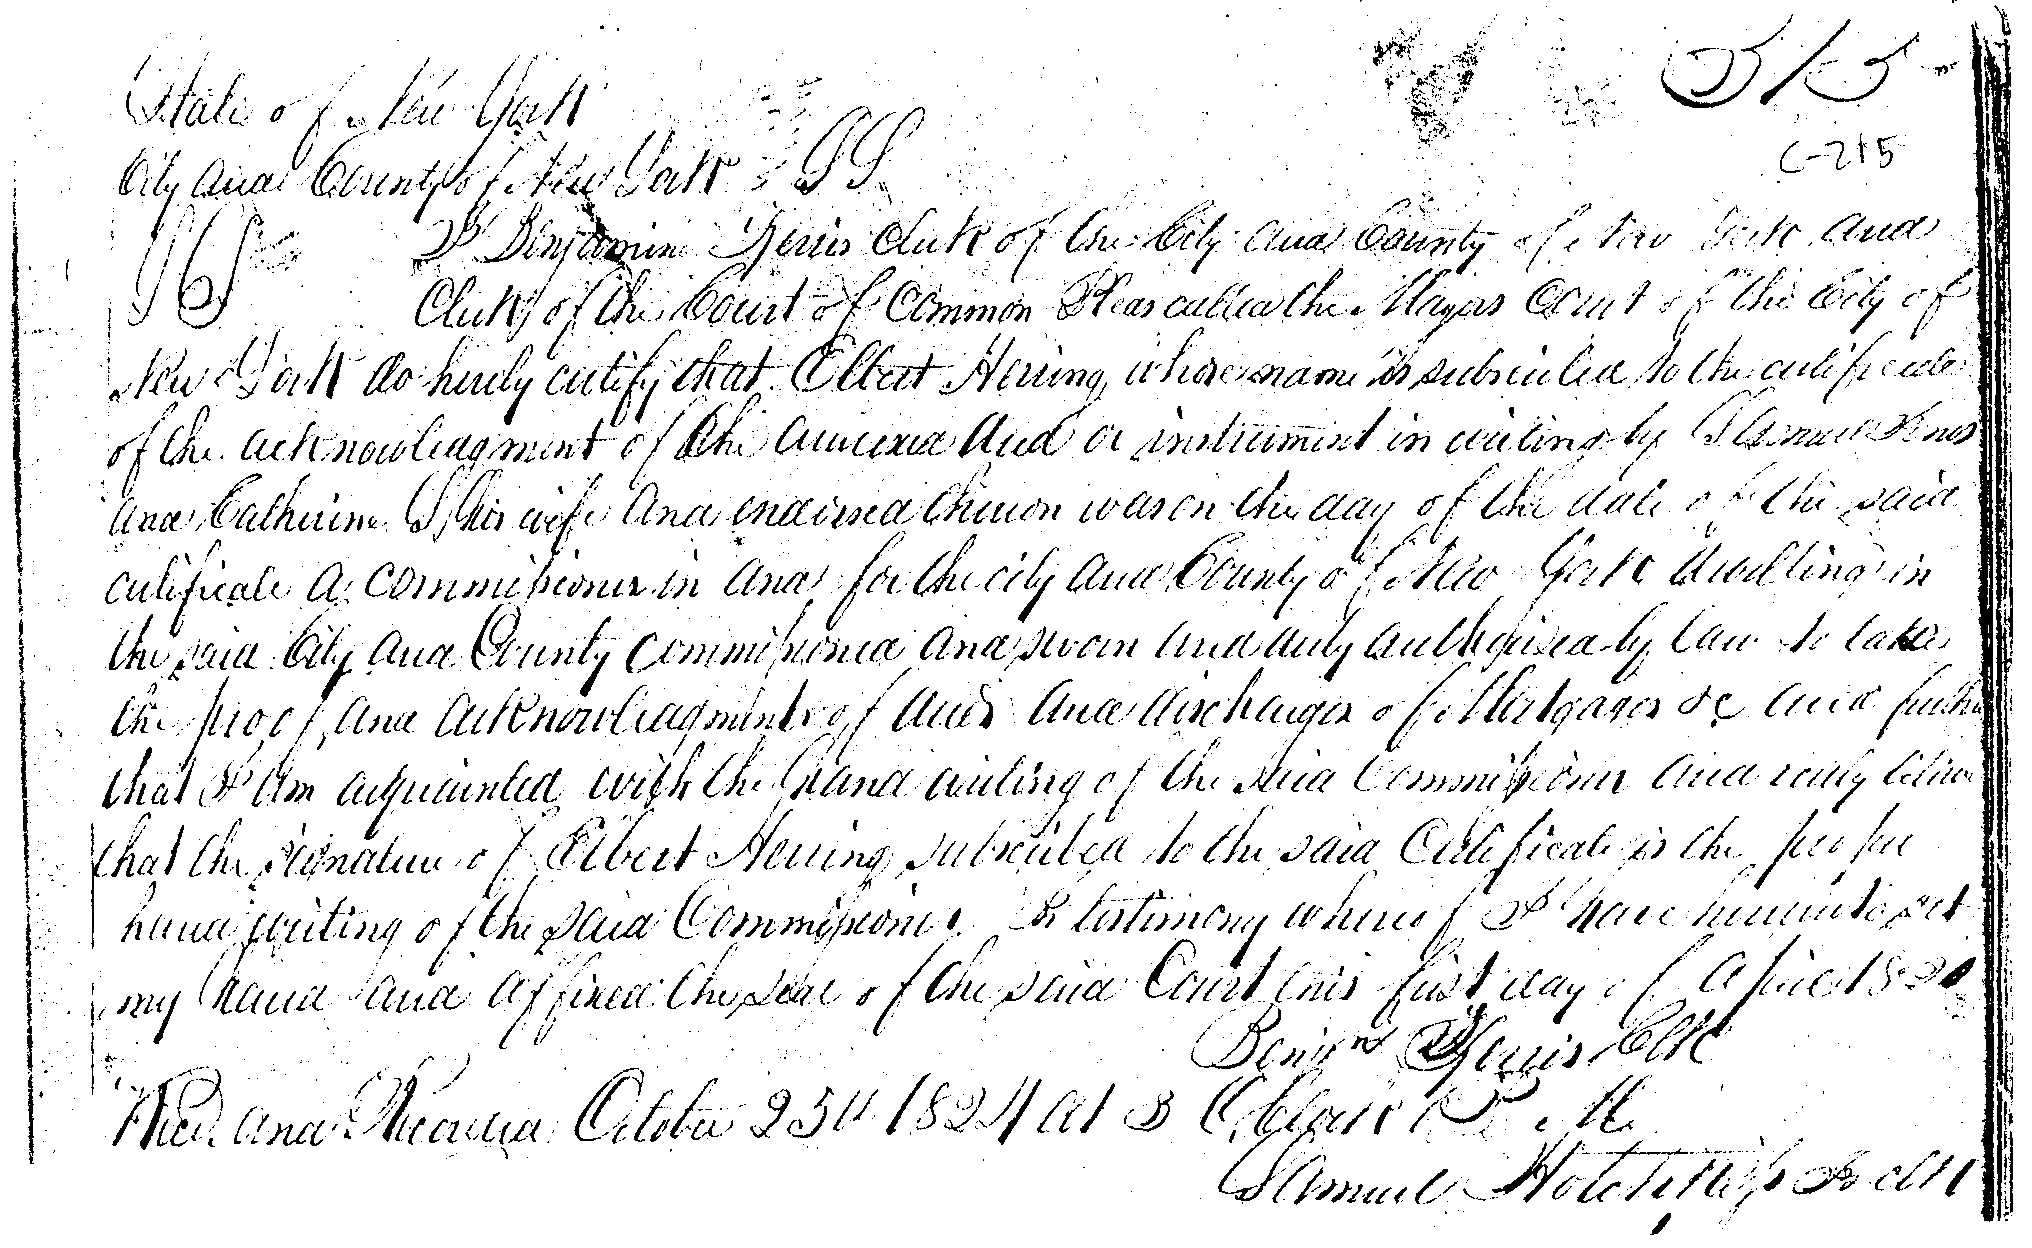 515
C-215
State of New York
City and County of New York SS
I Benjamin Ferris Clerk of the City and County of New York and
Clerk of the Court of Common Pleas called the Mayors Court of the City of
New York do hereby certify that Elbert Herring whose name is subscribed to the certificate
of the acknowledgment of the annexed deed or instrument in writing by Samuel
and Catherine S his wife and endorsed thereon was on the day of the date of the said
certificate a commissioner in and for the city and County of New York dwelling in
the said City and County commissioned and sworn and duly authorised by law to take
the proof and acknowledgments of deeds and discharges of Mortgages &c and further
that I am acquainted with the hand writing of the said Commissioner and verily believe
that the signature of Elbert Herring subscribed to the said Certificate is the proper
hand writing of the said Commissioner. In testimony whereof I have hereunto set
my hand and affixed the seal of the said Court this first day of April 182
Benjn Ferris Clk
Recd. and Recorded October 25th 1824 at 3 OClock P. M.
Samuel Hotchkiss Jr Clk